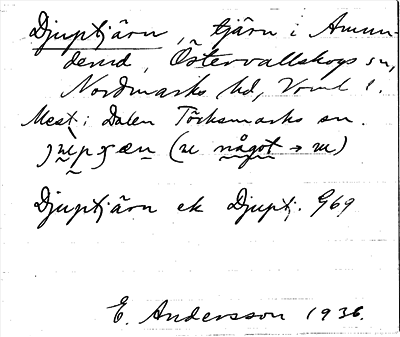 Djuptjärn, tjärn i Amun-
derud, Östervallskogs sn,
Nordmarks hd, Vrml l.
Mest i Dalen Töcksmarks sn.
(u något → ɯ)
Djuptjärn ek Djuptj. G69
E. Andersson 1936.